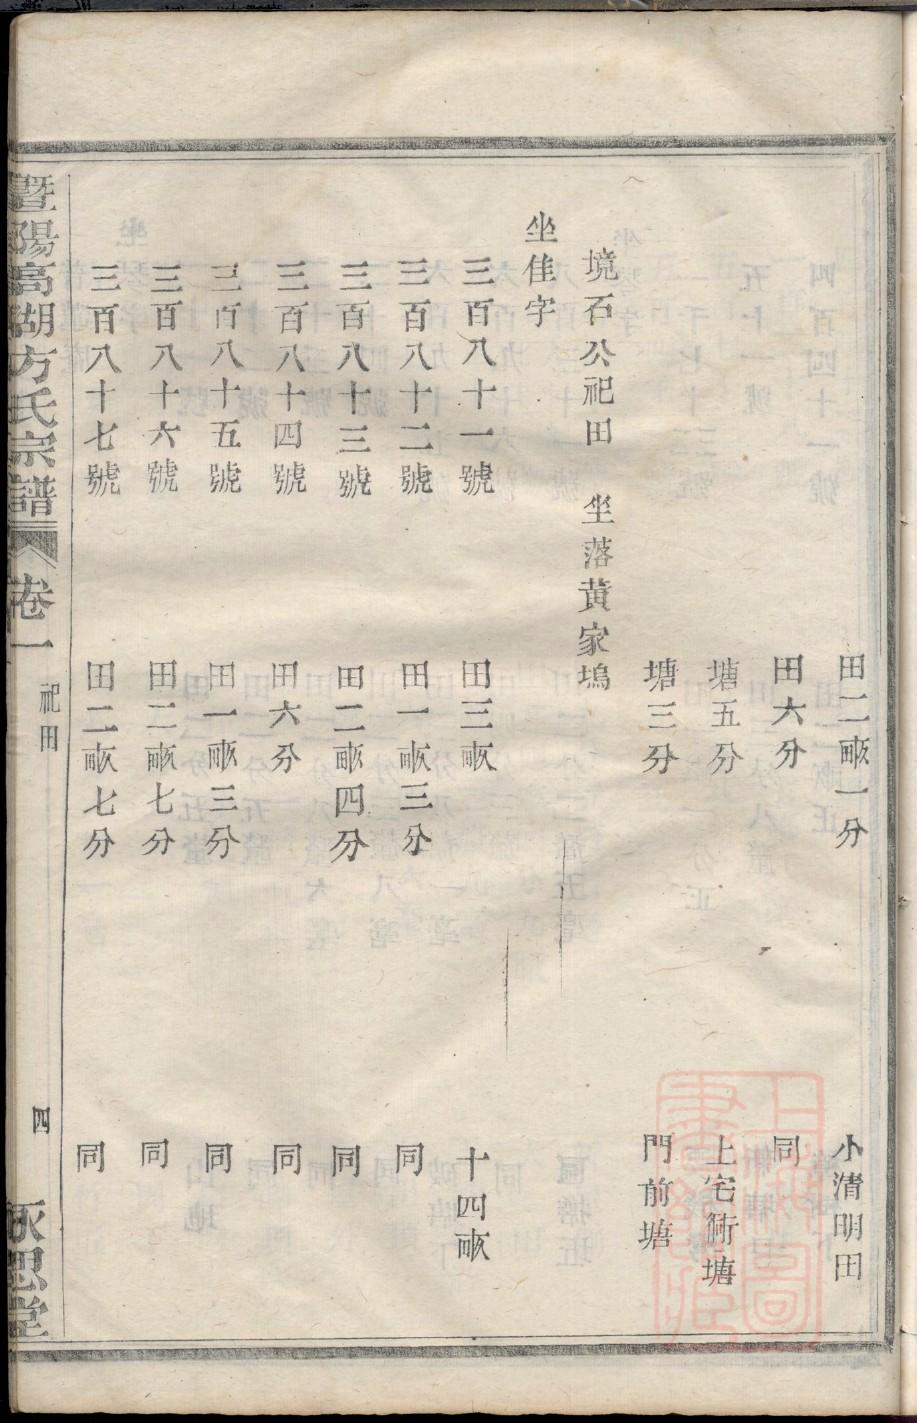 田二畝一分 小清明田
田六分 同
塘五分 上宅衕塘
塘三分 門前塘
境石公祀田 坐落黃家塢
坐佳字
三百八十一號 田三畝 十四畝
三百八十二號 田一畝三分 同
三百八十三號 田二畝四分 同
三百八十四號 田六分 同
三百八十五號 田一畝三分 同
三百八十六號 田二畝七分 同
三百八十七號 田二畝七分 同
暨陽高湖方氏宗譜 卷一 祀田 四 永思堂
上海圖書館藏